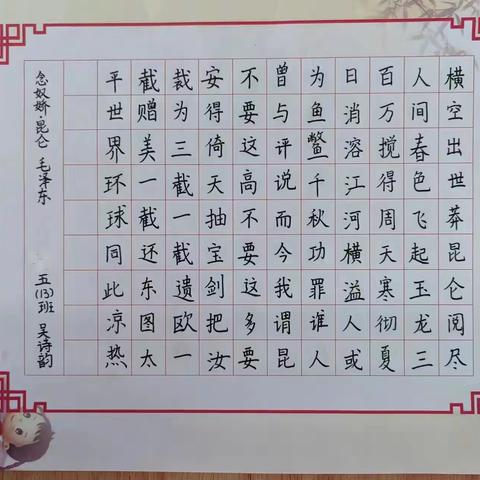 横空出世莽昆仑阅尽
人间春色飞起玉龙三
百万搅得周天寒彻夏
日消溶江河横溢人或
为鱼鳖千秋功罪谁人
曾与评说而今我谓昆
不要这高不要这多要
安得倚天抽宝剑把汝
裁为三截一截遗欧一
截赠美一截还东图太
平世界环球同此凉热
念奴娇·昆仑 毛泽东 五(13)班 吴诗韵